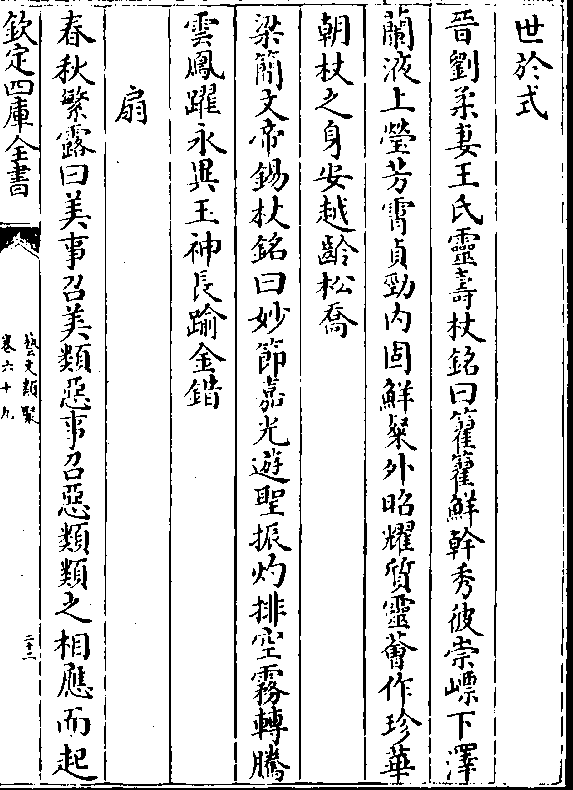 世於式
晉劉柔妻王氏靈壽杖銘曰籊籊鮮幹秀彼崇嶫下澤
蘭液上瑩芳霄貞勁內固鮮粲外昭耀質靈薈作珍華
朝杖之身安越齡松喬
梁簡文帝錫杖銘曰妙節嘉光遊聖振灼排空霧轉騰
雲鳳躍永異玉神長踰金錯
扇
春秋繁露曰美事召美類惡事召惡類類之相應而起
欽定四庫全書
藝文類聚
卷六十九
二十二